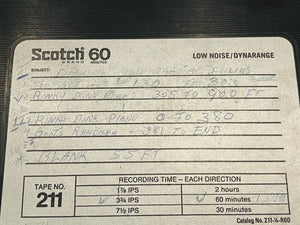 Scotch 60
BRAND MINUTES
LOW NOISE/DYNARANGE
SUBJECT:
130 TO 303
RINKY DINK PIANO 305 TO 900 FT
RINKY DINK PIANO 0 TO 380
BOOTS RANDOLPH - 381 TO END
* BLANK 55 FT
RECORDING TIME – EACH DIRECTION
TAPE NO.
211
1⅞ IPS 2 hours
✓ 3¾ IPS ✓ 60 minutes
7½ IPS 30 minutes
Catalog No. 211-¼-R60